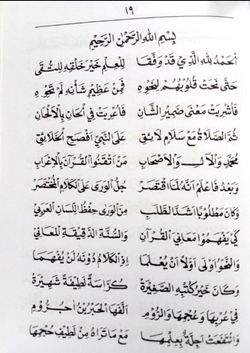 ١٩
بِسْمِ اللهِ الرَّحْمٰنِ الرَّحِيْمِ
اَلْحَمْدُ لِلهِ الَّذِيْ قَدْ وَفَّقَا لِلْعِلْمِ خَيْرَ خَلْقِهِ وَلِلتُّقَى
حَتَّى نَحَتْ قُلُوْبُهُمْ لِنَحْوِهِ فَمِنْ عَظِيْمِ شَأْنِهِ لَمْ تَحْوِهِ
فَأُشْرِبَتْ مَعْنَى ضَمِيْرِ الشَّانِ فَأَعْرَبَتْ فِي الْحَانِ بِالْأَلْحَانِ
ثُمَّ الصَّلَاةُ مَعَ سَلَامٍ لَائِقِ عَلَى النَّبِيِّ أَفْصَحِ الْخَلَائِقِ
مُحَمَّدٍ وَالْآلِ وَالْأَصْحَابِ مَنْ أَتْقَنُوا الْقُرْآنَ بِالْإِعْرَابِ
وَبَعْدُ فَاعْلَمْ أَنَّهُ لَمَّا اقْتَصَرْ جُلُّ الْوَرَى عَلَى الْكَلَامِ الْمُخْتَصَرْ
وَكَانَ مَطْلُوْبًا أَشَدَّ الطَّلَبِ مِنَ الْوَرَى حِفْظُ اللِّسَانِ الْعَرَبِيْ
كَيْ يَفْهَمُوْا مَعَانِيَ الْقُرْآنِ وَالسُّنَّةِ الدَّقِيْقَةِ الْمَعَانِيْ
وَالنَّحْوُ أَوْلَى أَوَّلًا أَنْ يُعْلَمَا إِذِ الْكَلَامُ دُوْنَهُ لَنْ يُفْهَمَا
وَكَانَ خَيْرُ كُتْبِهِ الصَّغِيْرَةِ كُرَّاسَةً لَطِيْفَةً شَهِيْرَةِ
فِيْ عُرْبِهَا وَعُجْمِهَا وَالرُّوْمِ أَلَّفَهَا الْحَبْرُ ابْنُ آجُرُّوْمِ
وَانْتَفَعَتْ أَجِلَّةٌ بِعِلْمِهَا مَعَ مَا تَرَاهُ مِنْ لَطِيْفِ حَجْمِهَا